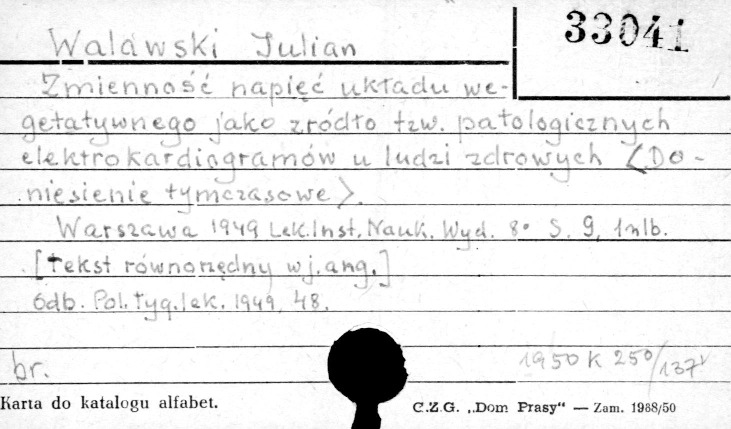 Walawski Julian
33041
Zmienność napięć układu we-
getatywnego jako zródło tzw. patologicznych
elektrokardiogramów u ludzi zdrowych (Do-
niesienie tymczasowe).
Warszawa 1949 Lek. Inst. Nauk. Wyd. 8° S. 9, 1 nlb.
[Tekst równorzędny w j. ang.]
Odb. Pol. Tyg. lek. 1949, 48.
br.
1950 K 250/137
Karta do katalogu alfabet.
C.Z.G. „Dom Prasy“ — Zam. 1988/50